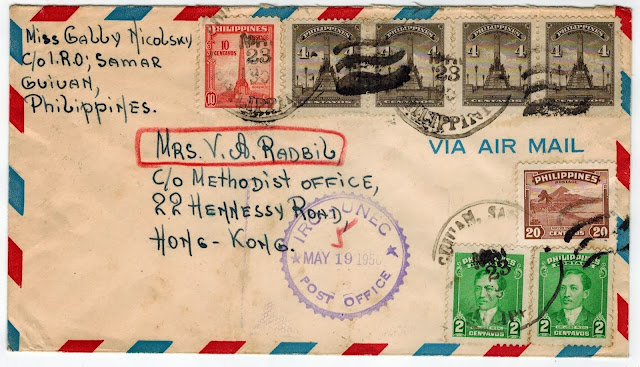 Miss Gally Nicolsky
c/o I.R.O; Samar
Guiuan,
Philippines.
PHILIPPINES
10
CENTAVOS
10
4 4
CENTAVOS
4 4
CENTAVOS
4 4
CENTAVOS
4 4
CENTAVOS
MAY
23
MAY
23
VIA AIR MAIL
Mrs. V. A. Radbil,
c/o Methodist Office,
22 Hennessy Road,
Hong-Kong.
PHILIPPINES
POSTAGE
20 CENTAVOS 20
IRO
MAY 19
POST OFFICE
GUIUAN, SA
23
2 CENTAVOS
CENTAVOS 2